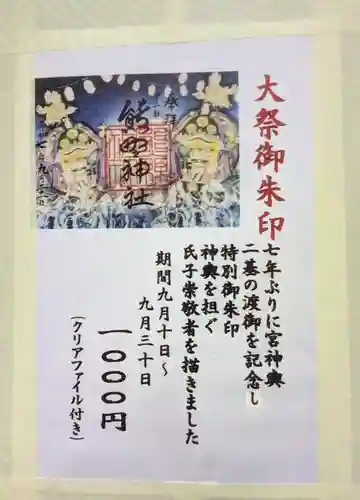 大祭御朱印
七年ぶりに宮神輿
二基の渡御を記念し
特別御朱印
神輿を担ぐ
氏子崇敬者を描きました
期間九月十日〜
九月三十日
一〇〇〇円
(クリアファイル付き)
奉拝
熊野神社